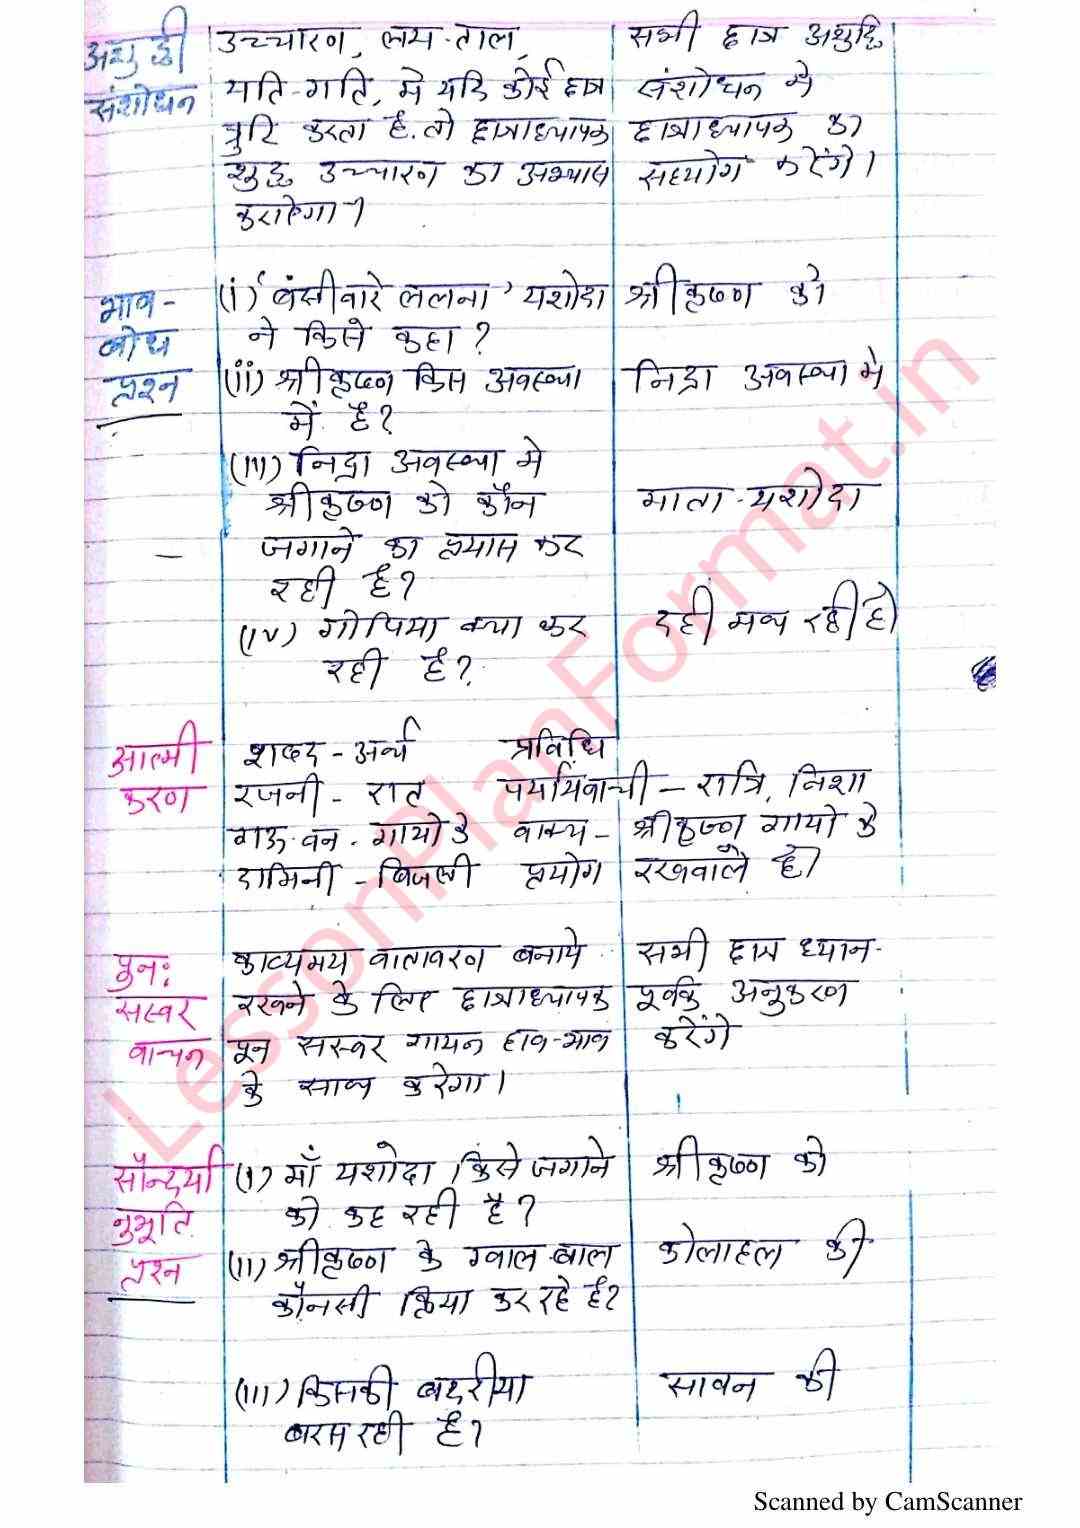 अशुद्धी
संशोधन
उच्चारण, लय-ताल,
यति-गति, मे यदि कोई छात्र
त्रुटि करता है. तो छात्राध्यापक
शुद्ध उच्चारण का अभ्यास
कराऐगा।
सभी छात्र अशुद्धि
संशोधन मे
छात्राध्यापक का
सहयोग करेंगे।
भाव-
बोध
प्रश्न
(i) 'बंसीवारे ललना' यशोदा
ने किसे कहा?
श्रीकृष्ण को
(ii) श्रीकृष्ण किस अवस्था
में है?
निद्रा अवस्था मे
(iii) निद्रा अवस्था मे
श्रीकृष्ण को कौन
जगाने का प्रयास कर
रही है?
माता-यशोदा
(iv) गोपिया क्या कर
रही है?
दही मथ रही है।
आत्मी
करण
शब्द - अर्थ प्रविधि
रजनी - रात पर्यायवाची - रात्रि, निशा
गऊ-वन - गायो के वाक्य - श्रीकृष्ण गायो के
दामिनी - बिजली प्रयोग रखवाले है।
पुन:
सस्वर
वाचन
काव्यमय वातावरण बनाये
रखने के लिए छात्राध्यापक
पुन सस्वर गायन हाव-भाव
के साथ करेगा।
सभी छात्र ध्यान-
पूर्वक अनुकरण
करेंगे
सौन्दर्या
नुभूति
प्रश्न
(i) माँ यशोदा किसे जगाने
को कह रही है?
श्रीकृष्ण को
(ii) श्रीकृष्ण के ग्वाल-बाल
कौनसी क्रिया कर रहे है?
कोलाहल की
(iii) किसकी बदरीया
बरस रही है?
सावन की
LessonPlanFormat.in
Scanned by CamScanner